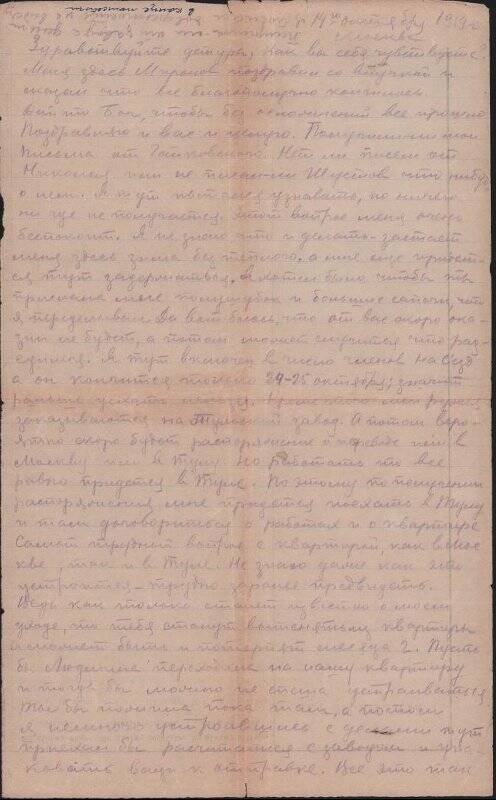 в конце
14го октября 1919 г.
Москва
Здравствуйте детуры, как вы себя чувствуете?
Меня здесь Миронов поздравил со внучкой и
сказал что все благополучно кончилось.
Дай то Бог, чтобы без осложнений все прошло
Поздравляю и вас и целую. Получили ли мои
письма от Гатковского. Нет ли писем от
Николая или не писал ли Шустов что нибудь
о нем. Я тут пытался узнавать, но ничего
ни где не получается. Этот вопрос меня очень
беспокоит. Я не знаю что и делать - застает
меня здесь зима без теплого, а мне еще придет-
ся тут задержаться. Я хотел было чтобы ты
прислала мне полушубок и большие сапоги, что
я переделывал. Да вот боюсь, что от вас скоро ока-
зии не будет, а потом может случится что раз-
едимся. Я тут включен в число членов на Съезд
а он кончится только 24-25 октября; значит
раньше уехать нельзя. Кроме того мои
заказываются на Тульский завод. А потом веро-
ятно скоро будет распоряжение о переводе или в
Москву или в Тулу. Но работать то все
равно придется в Туле. По этому по получении
распоряжения мне придется поехать в Тулу
и там договориться о работах и о квартире
Самый трудный вопрос с квартирой, как в Мос
кве, так и в Туле. Не знаю даже как это
устроится - трудно заранее предвидеть.
Ведь как только станет известно о моем
уходе, то тебя станут выгонять из квартиры
а может быть и потерпят месяца 2. Пусть
бы Людмила переехала на нашу квартиру
и тогда бы можно не спеша устраиваться
Ты бы пожила пока там, а потом
я немного устроившись с делами тут
приехал бы расчитаться с заводом и упа-
ковать вещи к отправке. Все это так